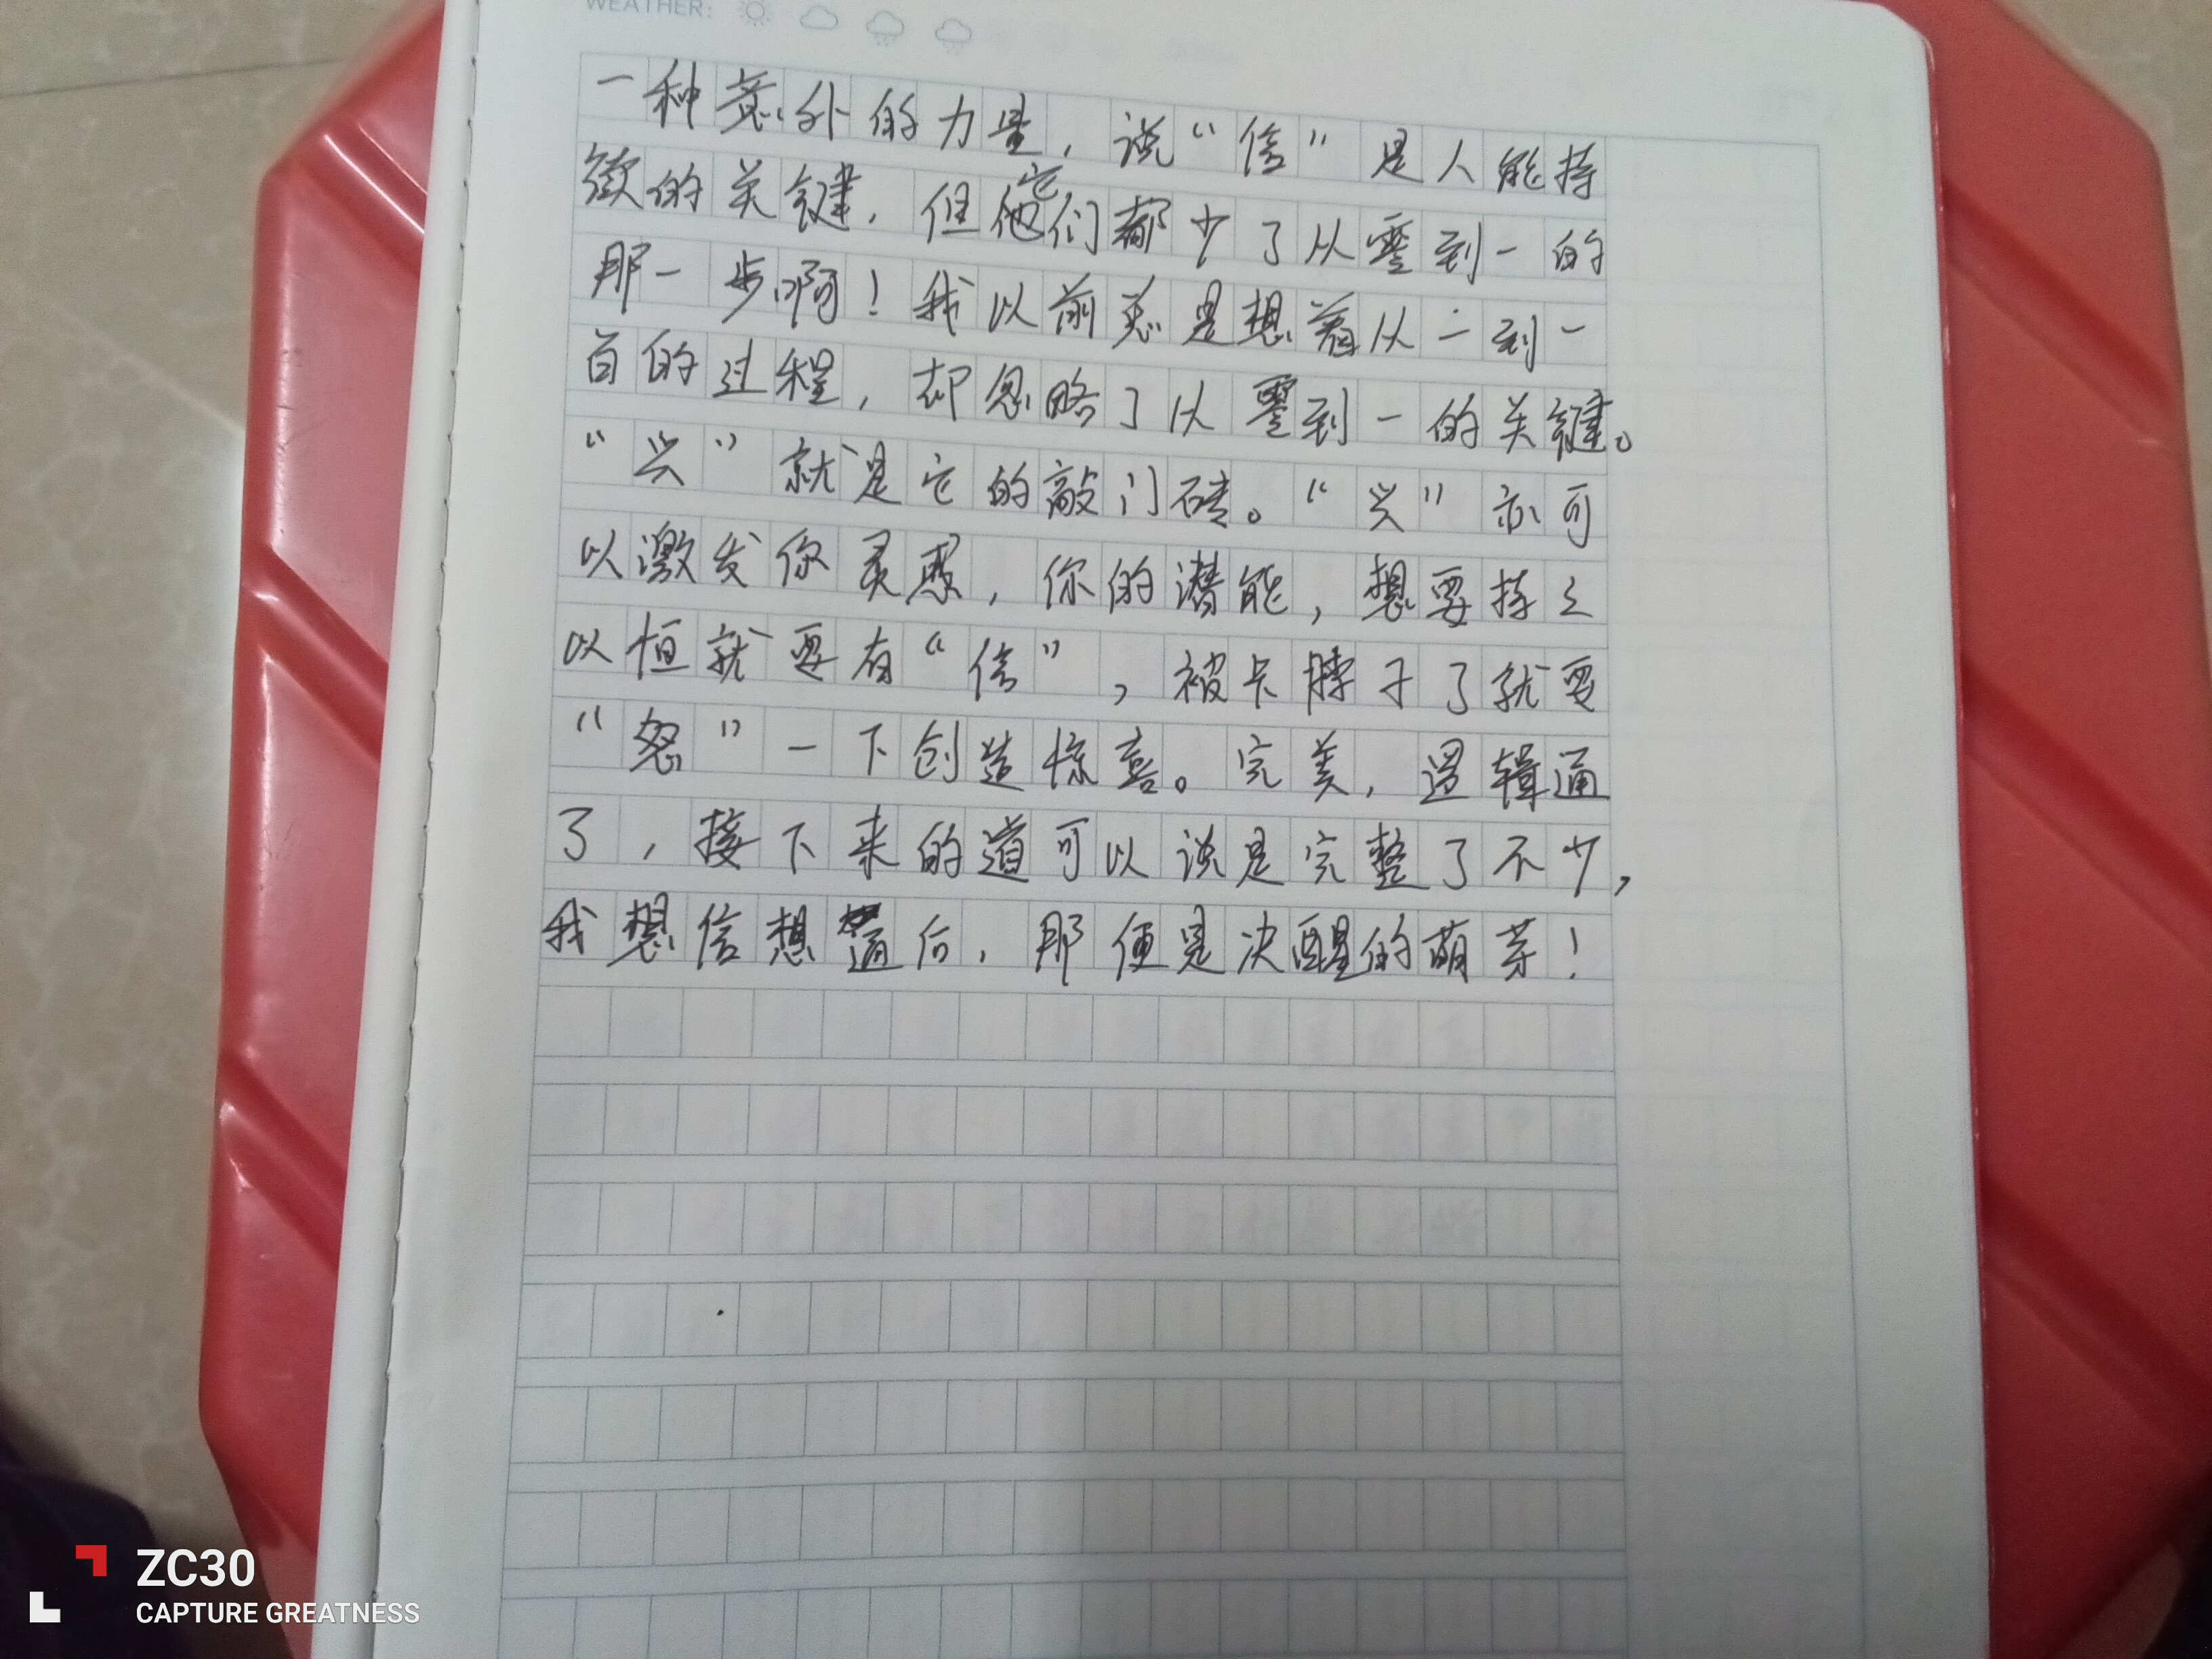 WEATHER:
一种意外的力量，说“信”是人能持
续的关键，但它们都少了从零到一的
那一步啊！我以前总是想着从一到一
百的过程，却忽略了从零到一的关键。
“兴”就是它的敲门砖。“兴”亦可
以激发你灵感，你的潜能，想要持之
以恒就要有“信”，被卡脖子了就要
“忽”一下创造惊喜。完美，逻辑通
了，接下来的道可以说是完整了不少，
我想信想通后，那便是决醒的萌芽！
ZC30
CAPTURE GREATNESS